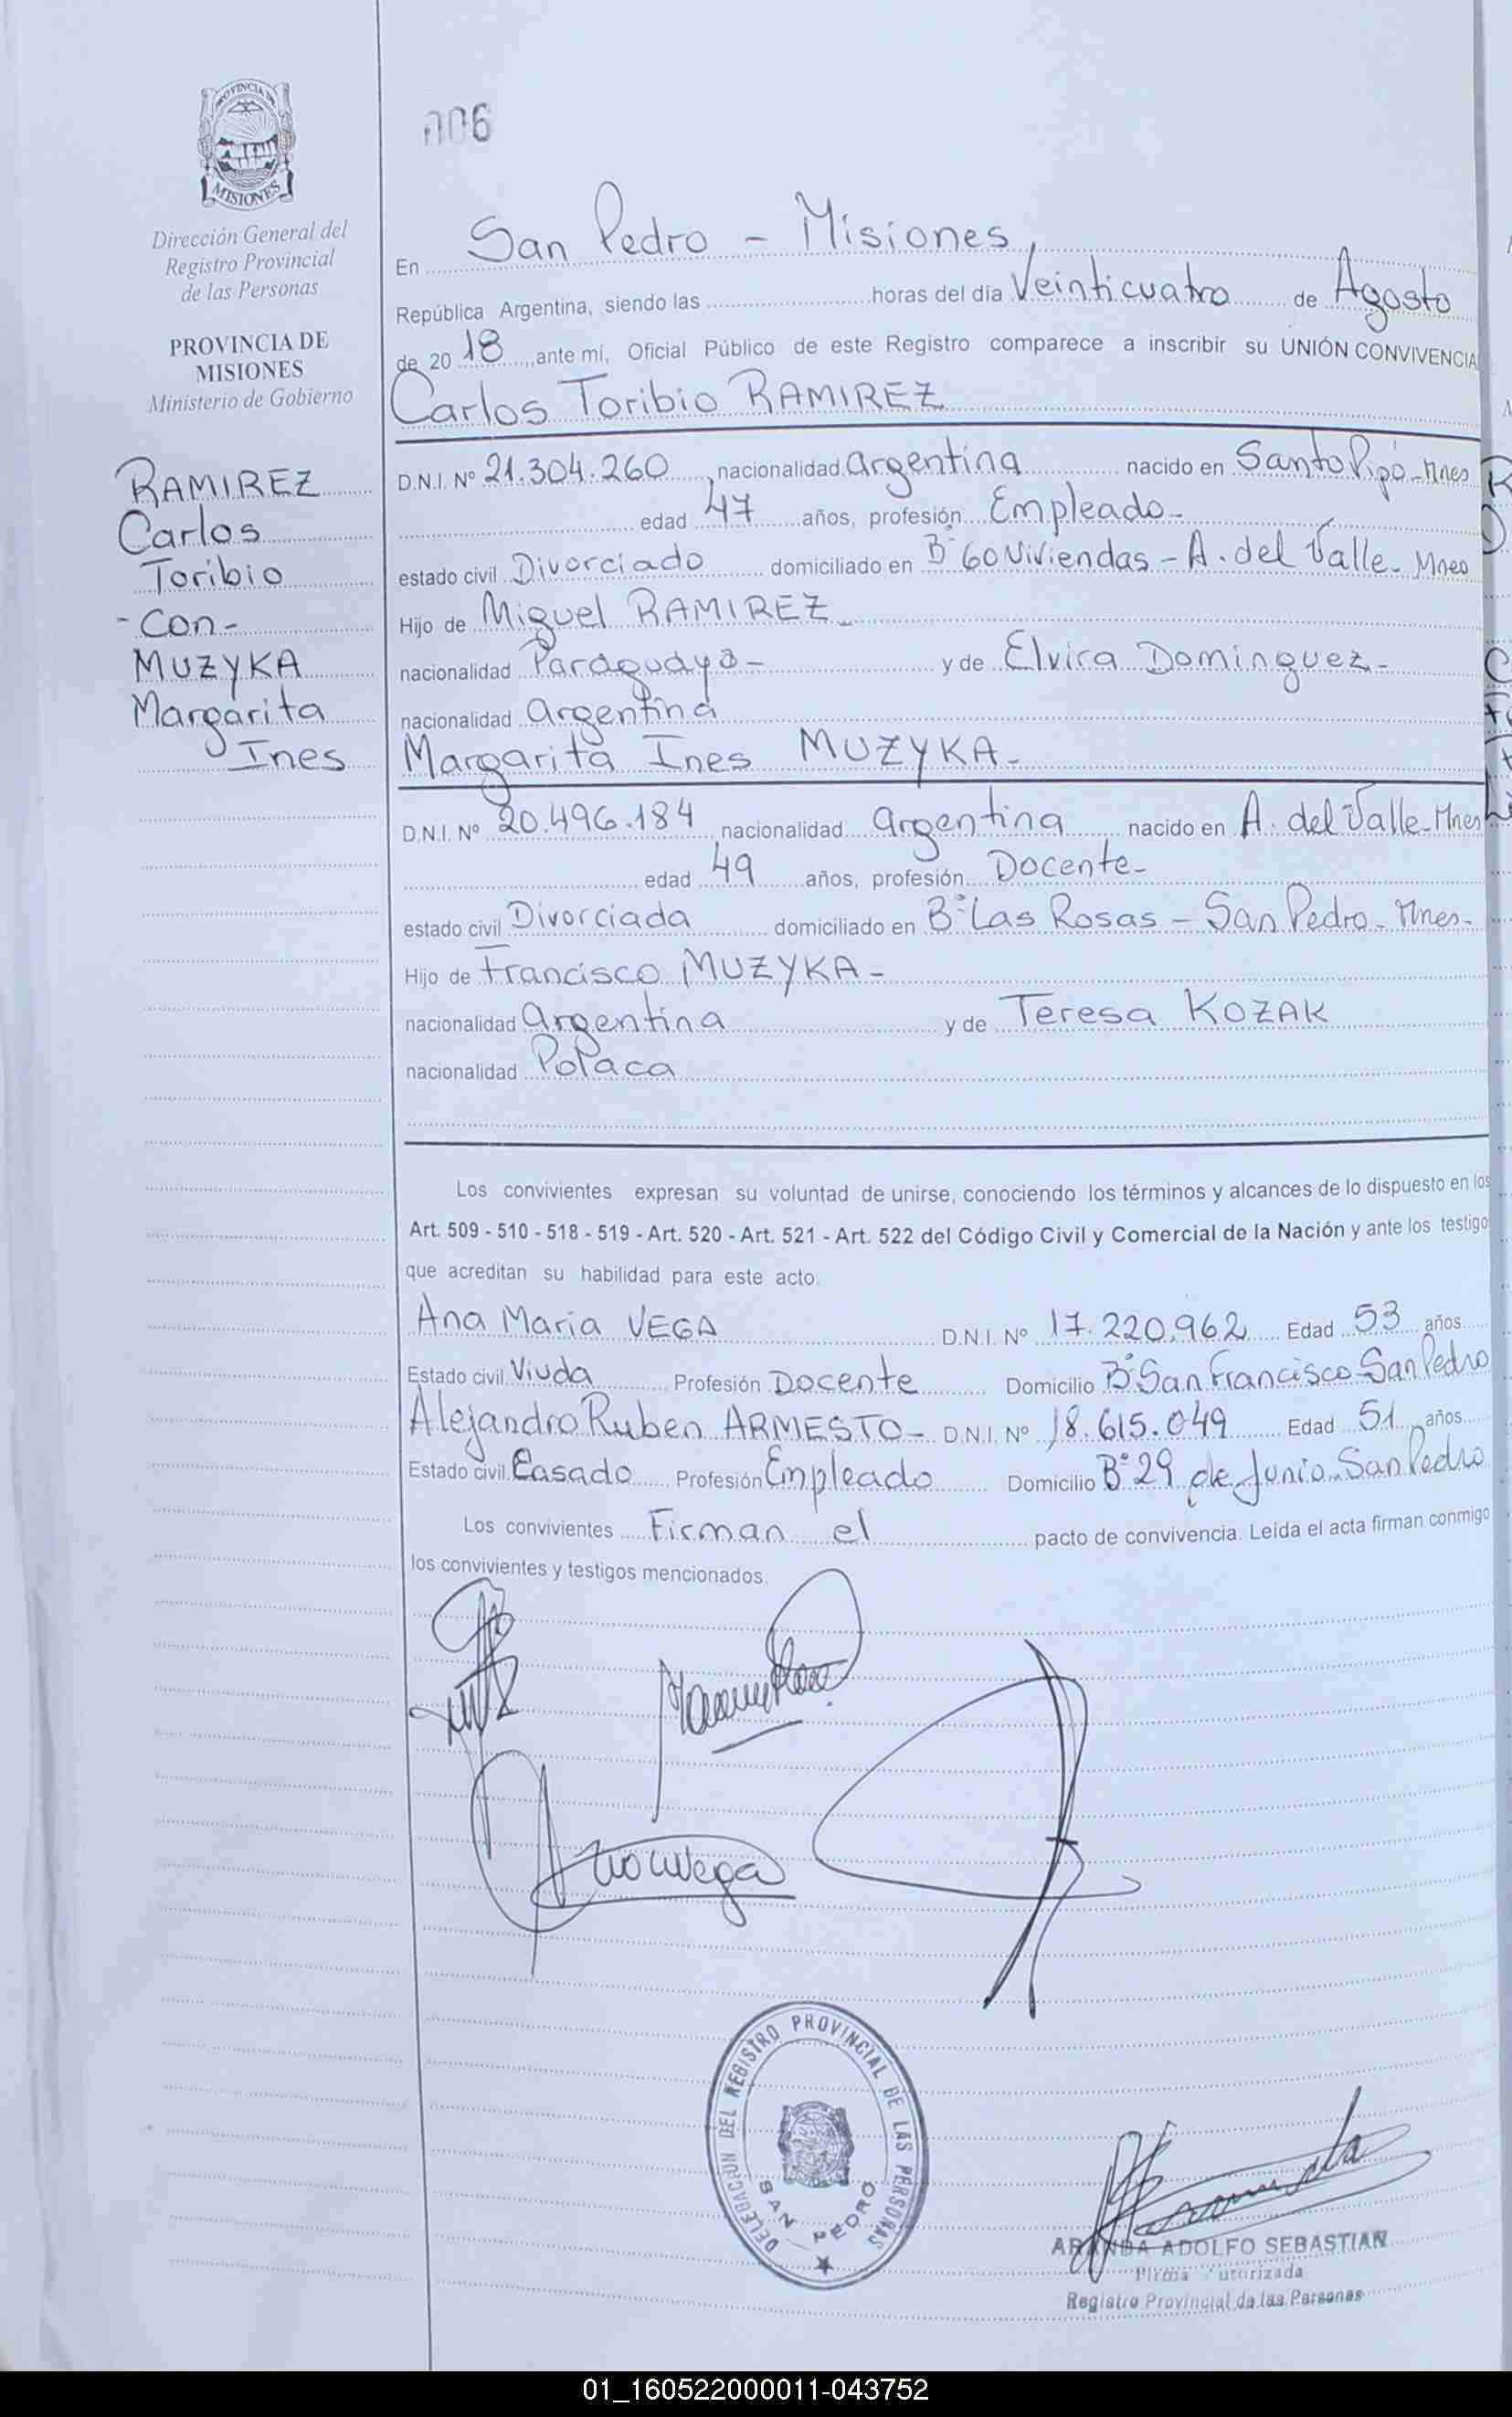 PROVINCIA DE
MISIONES
Dirección General del
Registro Provincial
de las Personas
PROVINCIA DE
MISIONES
Ministerio de Gobierno
RAMIREZ
Carlos
Toribio
- Con -
MUZYKA
Margarita
Ines
006
En San Pedro - Misiones,
República Argentina, siendo las horas del día Veinticuatro de Agosto
de 2018, ante mí, Oficial Público de este Registro comparece a inscribir su UNIÓN CONVIVENCIA
Carlos Toribio RAMIREZ
D.N.I. Nº 21.304.260, nacionalidad Argentina nacido en Santo Pipó - Mnes
edad 47 años, profesión Empleado -
estado civil Divorciado domiciliado en Bº 60 Viviendas - A. del Valle - Mnes
Hijo de Miguel RAMIREZ -
nacionalidad Paraguaya - y de Elvira Dominguez -
nacionalidad Argentina
Margarita Ines MUZYKA -
D.N.I. Nº 20.496.184 nacionalidad Argentina nacido en A. del Valle - Mnes
edad 49 años, profesión Docente -
estado civil Divorciada domiciliado en Bº Las Rosas - San Pedro - Mnes -
Hijo de Francisco MUZYKA -
nacionalidad Argentina y de Teresa KOZAK
nacionalidad Polaca
Los convivientes expresan su voluntad de unirse, conociendo los términos y alcances de lo dispuesto en los
Art. 509 - 510 - 518 - 519 - Art. 520 - Art. 521 - Art. 522 del Código Civil y Comercial de la Nación y ante los testigo
que acreditan su habilidad para este acto.
Ana Maria VEGA D.N.I. Nº 17.220.962 Edad 53 años
Estado civil Viuda Profesión Docente Domicilio Bº San Francisco San Pedro
Alejandro Ruben ARMESTO - D.N.I. Nº 18.615.049 Edad 51 años
Estado civil Casado Profesión Empleado Domicilio Bº 29 de Junio San Pedro
Los convivientes Firman el pacto de convivencia. Leida el acta firman conmigo
los convivientes y testigos mencionados.
DELEGACION DEL REGISTRO PROVINCIAL DE LAS PERSONAS
SAN PEDRO
ARANDA ADOLFO SEBASTIAN
Firma Autorizada
Registro Provincial de las Personas
01_160522000011-043752